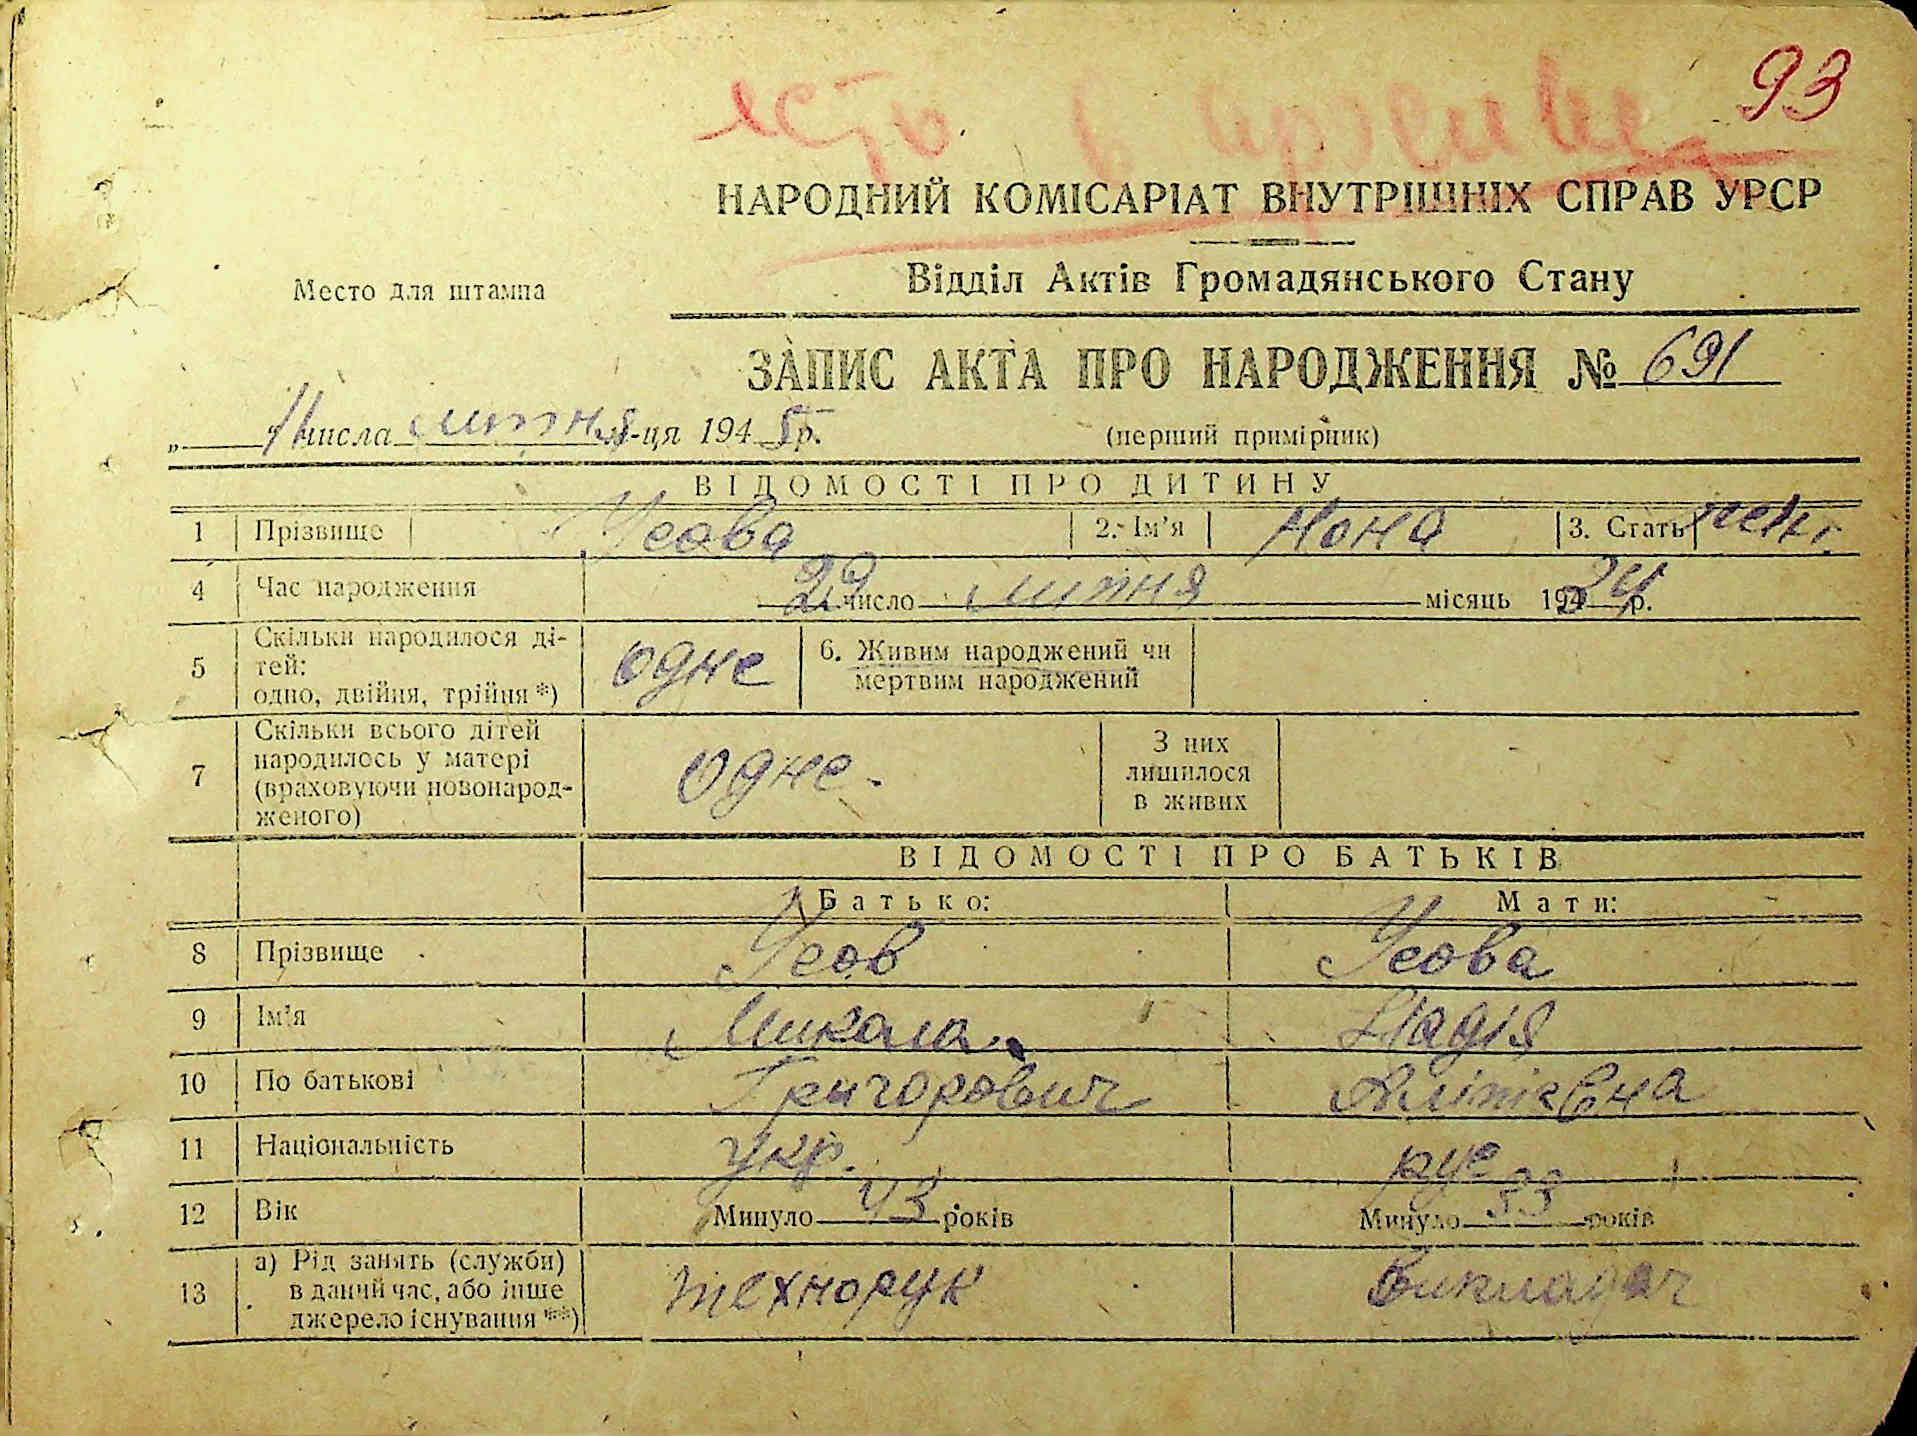 93
есть в архиве
НАРОДНИЙ КОМІСАРІАТ ВНУТРІШНІХ СПРАВ УРСР
Відділ Актів Громадянського Стану
Место для штампа
ЗАПИС АКТА ПРО НАРОДЖЕННЯ № 691
„ 11 " числа липня м-ця 194 5 р.
(перший примірник)
ВІДОМОСТІ ПРО ДИТИНУ
1 Прізвище Усова 2. Ім'я Нона 3. Стать жін.
4 Час народження 22 число липня місяць 1934 р.
5 Скільки народилося ді-
тей:
одно, двійня, трійня *) одне
6. Живим народжений чи
мертвим народжений
7 Скільки всього дітей
народилось у матері
(враховуючи новонарод-
женого) одне.
З них
лишилося
в живих
ВІДОМОСТІ ПРО БАТЬКІВ
Батько: Мати:
8 Прізвище Усов Усова
9 Ім'я Микола Надія
10 По батькові Григорович Аліпієвна
11 Національність укр. рус
12 Вік Минуло 43 років Минуло 33 років
13 а) Рід занять (служби)
в даний час, або інше
джерело існування **) технорук викладач